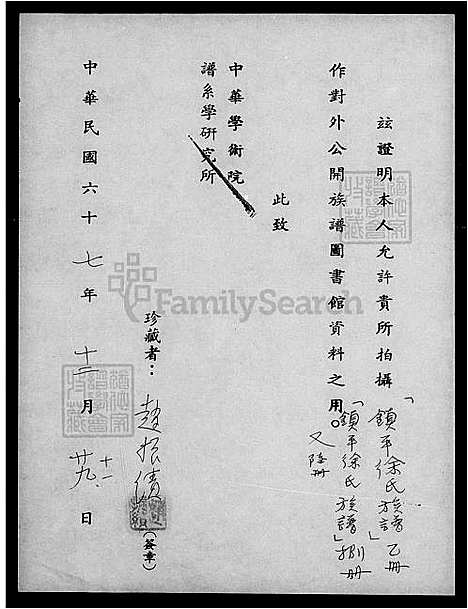 茲證明本人允許貴所拍攝「鎮平徐氏族譜」乙冊
「鎮平徐氏族譜」捌冊
又陸冊
作對外公開族譜圖書館資料之用。
此致
中華學術院
譜系學研究所
珍藏者：趙振績（簽章）
中華民國六十七年十二月廿九日
十一
FamilySearch